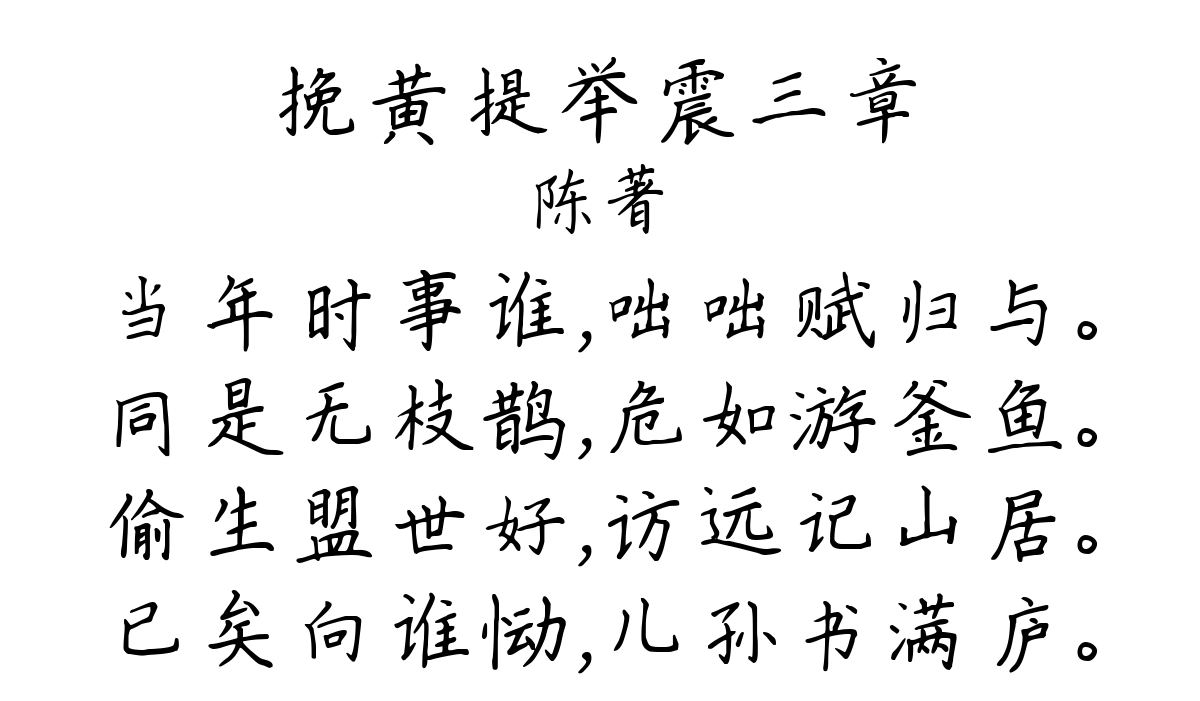 挽黄提举震三章
陈著
当年时事谁,咄咄赋归与。
同是无枝鹊,危如游釜鱼。
偷生盟世好,访远记山居。
已矣向谁恸,儿孙书满庐。